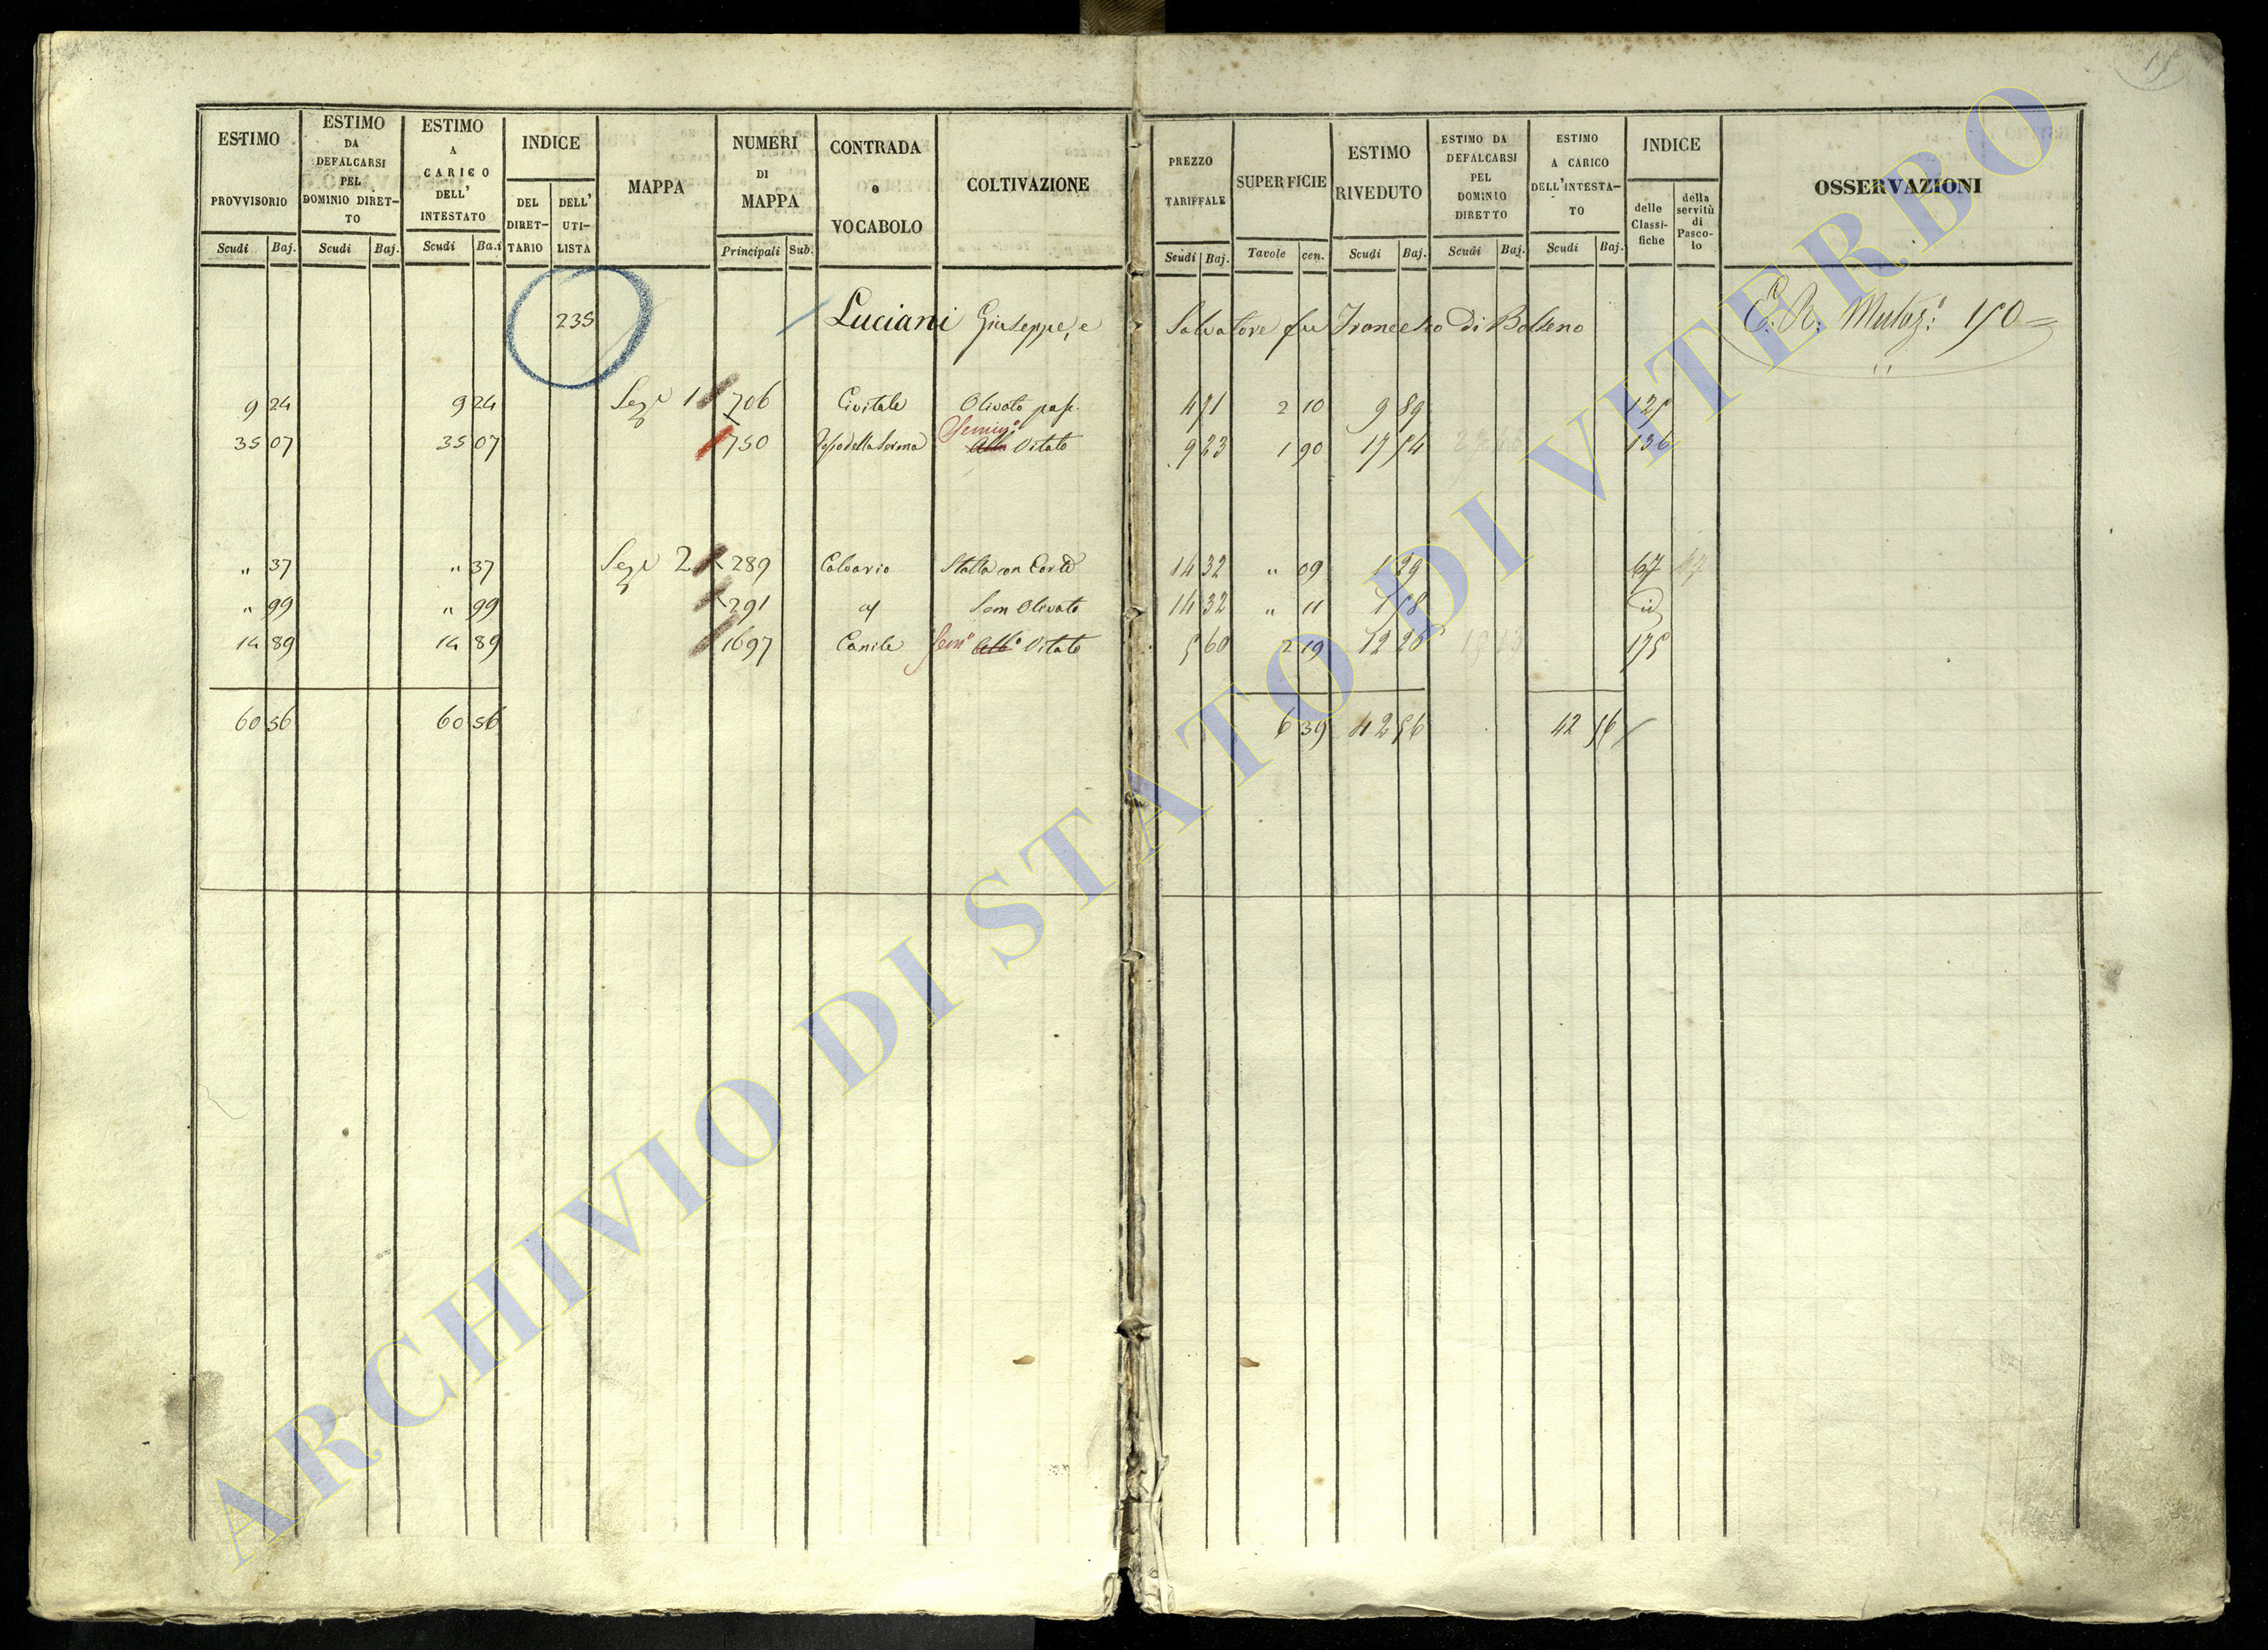 ESTIMO PROVVISORIO | ESTIMO DA DEFALCARSI PEL DOMINIO DIRETTO | ESTIMO A CARICO DELL' INTESTATO | INDICE | MAPPA | NUMERI DI MAPPA | CONTRADA o VOCABOLO | COLTIVAZIONE | PREZZO TARIFFALE | SUPERFICIE | ESTIMO RIVEDUTO | ESTIMO DA DEFALCARSI PEL DOMINIO DIRETTO | ESTIMO A CARICO DELL'INTESTATO | INDICE | OSSERVAZIONI
DEL DIRETTARIO | DELL' UTILISTA | delle Classifiche | della servitù di Pascolo
Scudi | Baj. | Scudi | Baj. | Scudi | Baj. | Principali | Sub. | Scudi | Baj. | Tavole | cen. | Scudi | Baj. | Scudi | Baj. | Scudi | Baj.
235 Luciani Giuseppe, e Salvatore fu Francesco Di Bolseno 150
9 24 9 24 Sez. 1 706 Civitale Olivato pas. 4 71 2 10 9 89 125
35 07 35 07 750 Vitato 9 23 1 90 17 54 136
" 37 " 37 Sez. 2 289 Calvario Stalla con Corte 14 32 " 09 1 29 67
" 99 " 99 291 Sem Olivato 14 32 " 11 1 58 id
14 89 14 89 1697 Canile Sem° Vitato 5 60 2 19 12 26 175
60 56 60 56 6 39 42 56 42 56
ARCHIVIO DI STATO DI VITERBO